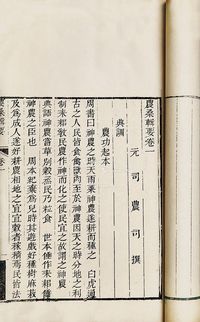 農桑輯要卷一
元 司農司 撰
典訓
農功起本
周書曰神農之時天雨粟神農遂耕而種之 白虎通
古之人民皆食禽獸肉至於神農因天之時分地之利
制耒耜教民農作神而化之使民宜之故謂之神農
典語神農嘗草別穀烝民乃粒食 世本倕作耒耜倕
神農之臣也 周本紀棄為兒時其遊戲好種樹麻菽
及為成人遂好耕農相地之宜宜穀者稼穡焉民皆法
農桑輯要 卷一